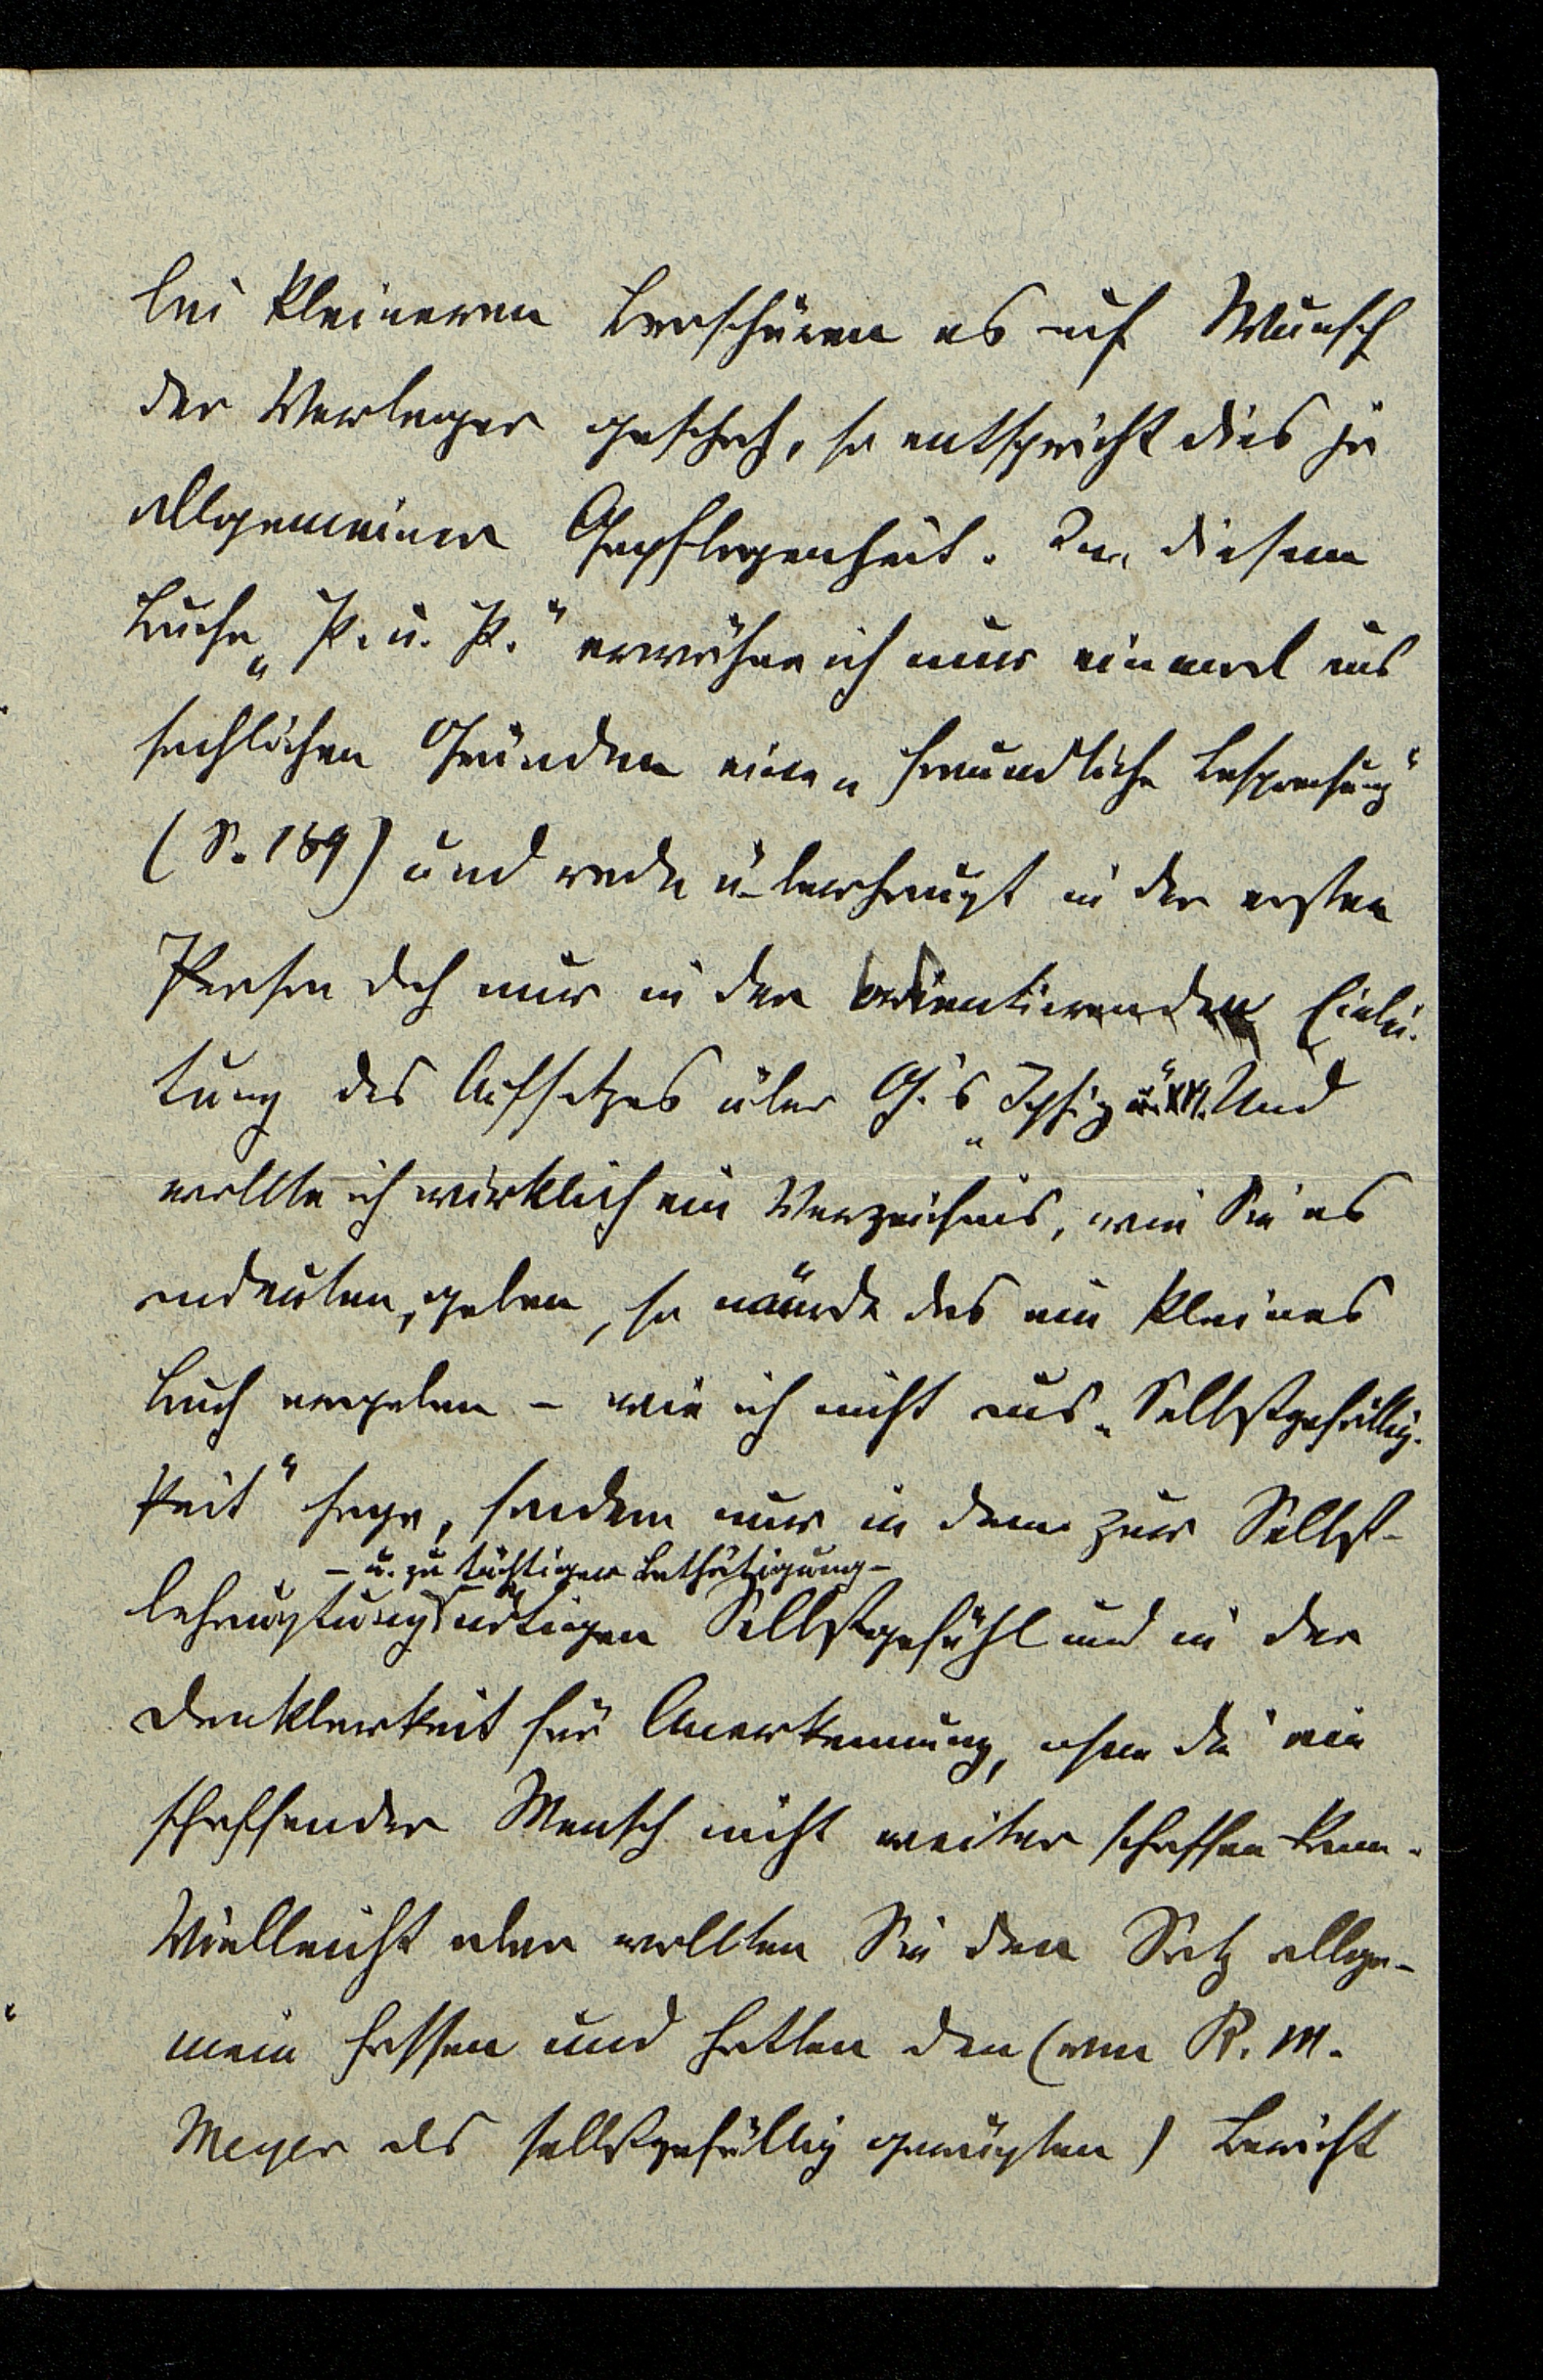 bei kleineren Broschüren es auf Wunsch
der Verleger geschah, so entspricht dies ja
allgemeiner Gepflogenheit. In diesem
Buche „P. u. P.“ erwähne ich nur einmal aus
sachlichen Gründen eine „freundliche Besprechung“
(S. 189) und rede überhaupt in der ersten
Person doch nur in der orientierenden Einlei-
tung des Aufsatzes über G.'s „Iphig“ Und
wollte ich wirklich ein Verzeichnis, wie Sie es
andeuten, geben, so würde das ein kleines
Buch ergeben – wie ich nicht aus „Selbstgefällig-
keit“ sage, sondern nur in dem zur Selbst-
– u. zu tüchtiger Bethätigung –
behauptung nötigen Selbstgefühl und in der
Dankbarkeit für Anerkennung, ohne die ein
schaffender Mensch nicht weiter schaffen kann.
Vielleicht aber wollten Sie den Satz allge-
mein fassen und hatten den (von R. M.
Meyer als selbstgefällig gerügten) Bericht